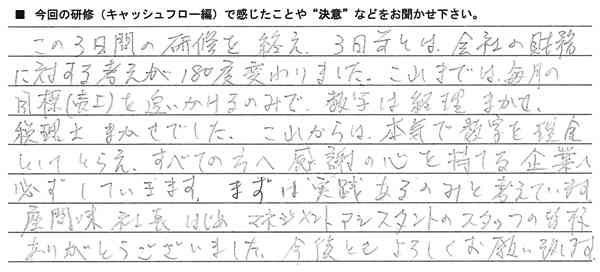 ■ 今回の研修（キャッシュフロー編）で感じたことや“決意”などをお聞かせ下さい。
この3日間の研修を終え、3日前とは、会社の財務
に対する考えが180度変わりました。これまでは、毎月の
目標(売上)を追いかけるのみで、数字は経理まかせ、
税理士まかせでした。これからは、本気で数字を現金
としてとらえ、すべての方へ感謝の心を持てる企業に
必ずしていきます。まずは実践あるのみと考えています。
座間味社長はじめ、マネジメントアシスタントのスタッフの皆様
ありがとうございました。今後ともよろしくお願い致します。